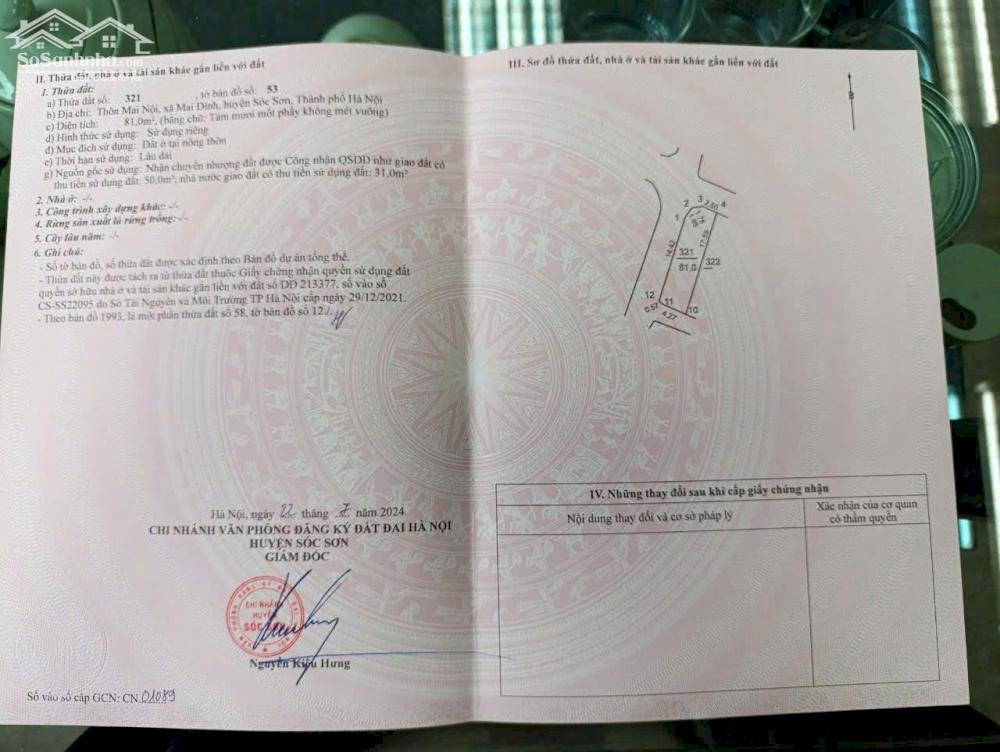 SoSanhnha.com
II. Thửa đất, nhà ở và tài sản khác gắn liền với đất
1. Thửa đất:
a) Thửa đất số: 321 , tờ bản đồ số: 53
b) Địa chỉ: Thôn Mai Nội, xã Mai Đình, huyện Sóc Sơn, Thành phố Hà Nội
c) Diện tích: 81,0m², (bằng chữ: Tám mươi mốt phẩy không mét vuông)
d) Hình thức sử dụng: Sử dụng riêng
đ) Mục đích sử dụng: Đất ở tại nông thôn
e) Thời hạn sử dụng: Lâu dài
g) Nguồn gốc sử dụng: Nhận chuyển nhượng đất được Công nhận QSDĐ như giao đất có
thu tiền sử dụng đất: 50,0m²; nhà nước giao đất có thu tiền sử dụng đất: 31,0m²
2. Nhà ở: -/-
3. Công trình xây dựng khác: -/-
4. Rừng sản xuất là rừng trồng: -/-
5. Cây lâu năm: -/-
6. Ghi chú:
- Số tờ bản đồ, số thửa đất được xác định theo Bản đồ dự án tổng thể.
- Thửa đất này được tách ra từ thửa đất thuộc Giấy chứng nhận quyền sử dụng đất
quyền sở hữu nhà ở và tài sản khác gắn liền với đất số DD 213377, số vào sổ
CS-SS22095 do Sở Tài Nguyên và Môi Trường TP Hà Nội cấp ngày 29/12/2021.
- Theo bản đồ 1993, là một phần thửa đất số 58, tờ bản đồ số 12./.
Hà Nội, ngày 22 tháng 7 năm 2024
CHI NHÁNH VĂN PHÒNG ĐĂNG KÝ ĐẤT ĐAI HÀ NỘI
HUYỆN SÓC SƠN
GIÁM ĐỐC
CHI NHÁNH
HUYỆN
SÓC SƠN
Nguyễn Kiệu Hưng
Số vào sổ cấp GCN: CN 01089
III. Sơ đồ thửa đất, nhà ở và tài sản khác gắn liền với đất
2 3 2.50 4
1
14.42 17.59
321
81.0 322
12 11 10
0.57 4.27
IV. Những thay đổi sau khi cấp giấy chứng nhận
Nội dung thay đổi và cơ sở pháp lý
Xác nhận của cơ quan
có thẩm quyền